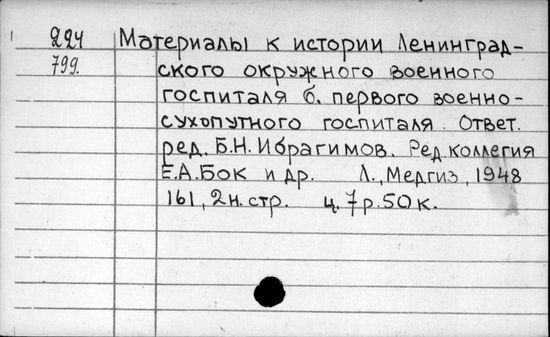 224 Материалы к истории Ленинград-
799. ского окружного военного
госпиталя б. первого военно-
сухопутного госпиталя. Ответ.
ред. Б.Н. Ибрагимов. Ред. коллегия
Е.А. Бок и др. Л., Медгиз, 1948
161, 2 н. стр. ц. 7 р. 50 к.